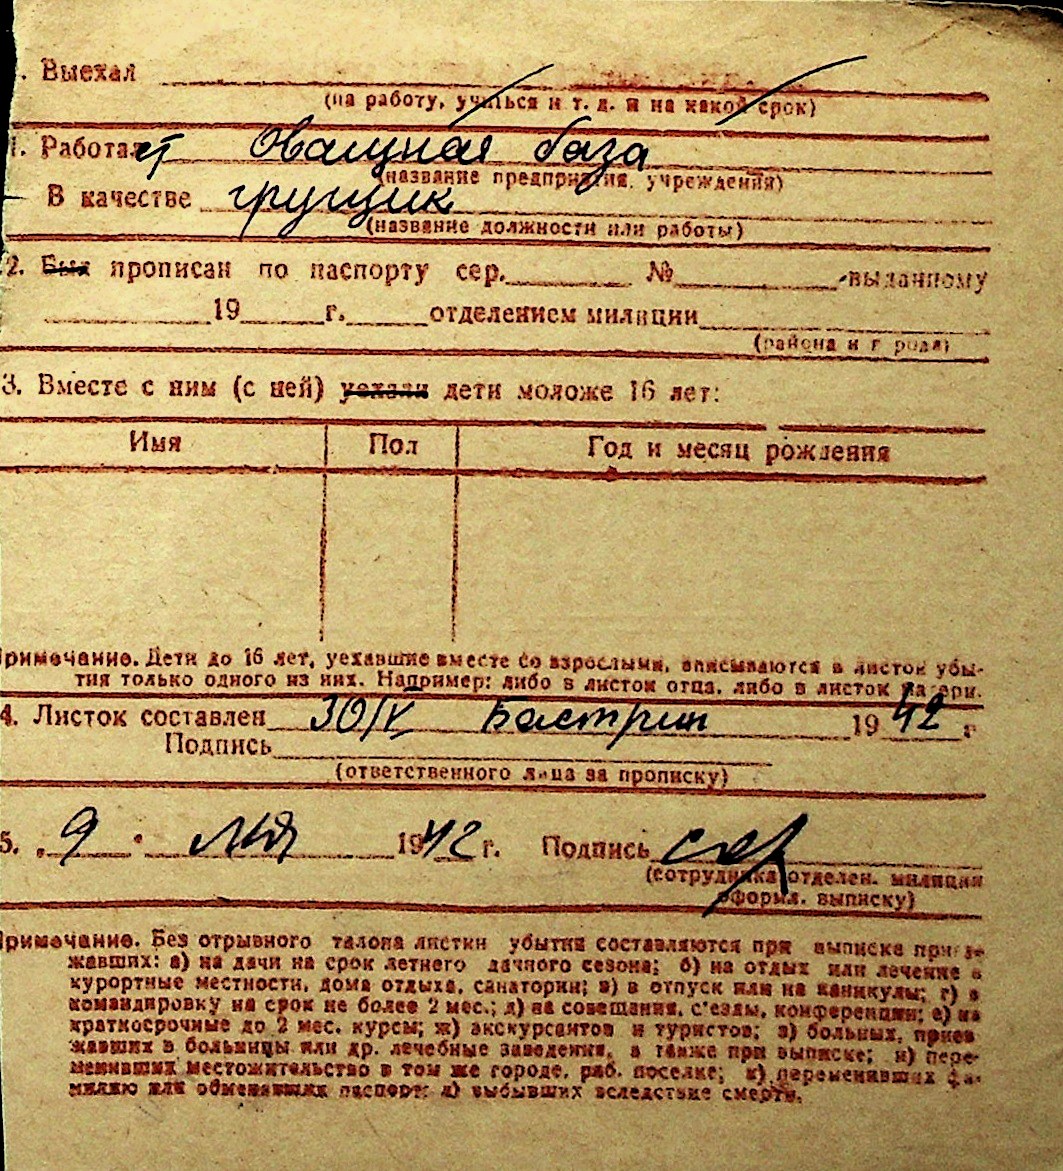 . Выехал
(на работу, учиться и т. д. и на какой срок)
1. Работает Овощная база
(название предприятия, учреждения)
В качестве грузщик
(название должности или работы)
2. Был прописан по паспорту сер. № выданному
19 г. отделением милиции
(района и г рода)
3. Вместе с ним (с ней) уехали дети моложе 16 лет:
Имя Пол Год и месяц рождения
Примечание. Дети до 16 лет, уехавшие вместе со взрослыми, вписываются в листок убы-
тия только одного из них. Например: либо в листок отца, либо в листок матери.
4. Листок составлен 30/V Бастрин 1942 г
Подпись
(ответственного лица за прописку)
5. „9" 1942 г. Подпись
(сотрудника отделен. милиции
оформл. выписку)
Примечание. Без отрывного талона листки убытия составляются при выписке приез-
жавших: а) на дачи на срок летнего дачного сезона; б) на отдых или лечение в
курортные местности, дома отдыха, санатории; в) в отпуск или на каникулы; г) в
командировку на срок не более 2 мес.; д) на совещания, с'езды, конференции; е) на
краткосрочные до 2 мес. курсы; ж) экскурсантов и туристов; з) больных, приез-
жавших в больницы или др. лечебные заведения, а также при выписке; и) пере-
менивших местожительство в том же городе, раб. поселке; к) переменивших фа-
милию или обменявших паспорт; л) выбывших вследствие смерти.